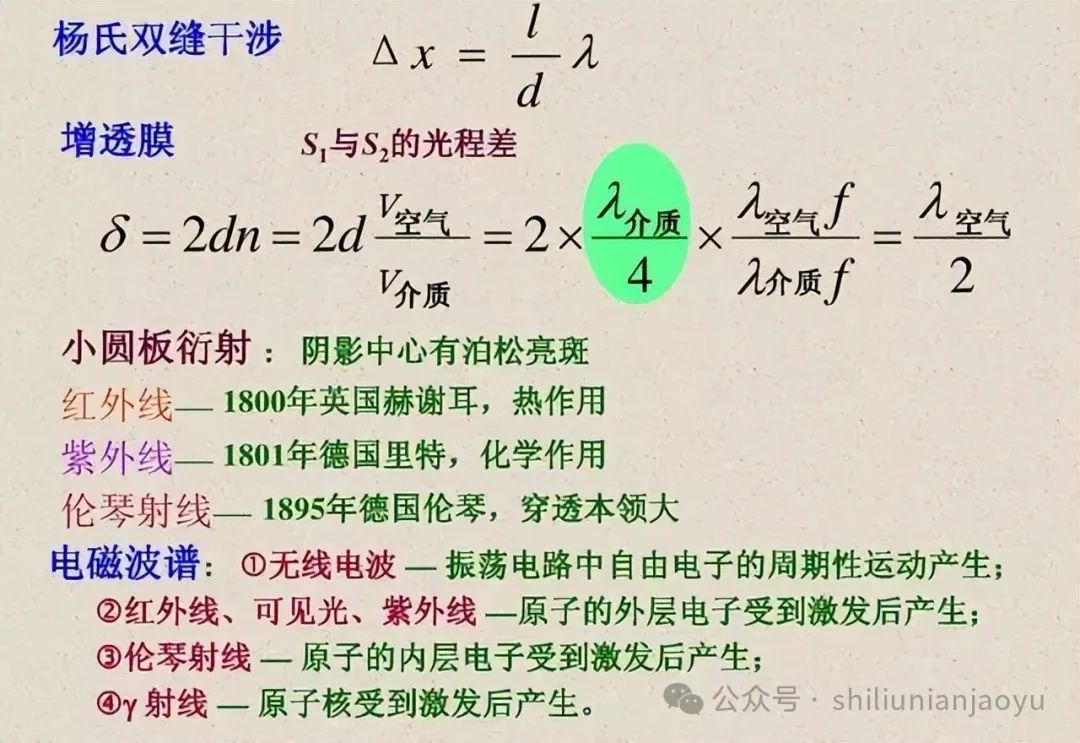 杨氏双缝干涉 Δx = l/d λ
增透膜 S₁与S₂的光程差
δ = 2dn = 2d V空气/V介质 = 2 × λ介质/4 × λ空气f/λ介质f = λ空气/2
小圆板衍射： 阴影中心有泊松亮斑
红外线— 1800年英国赫谢耳，热作用
紫外线— 1801年德国里特，化学作用
伦琴射线— 1895年德国伦琴，穿透本领大
电磁波谱：①无线电波 — 振荡电路中自由电子的周期性运动产生；
②红外线、可见光、紫外线 —原子的外层电子受到激发后产生；
③伦琴射线 — 原子的内层电子受到激发后产生；
④γ 射线 — 原子核受到激发后产生。
公众号 · shiliunianjaoyu